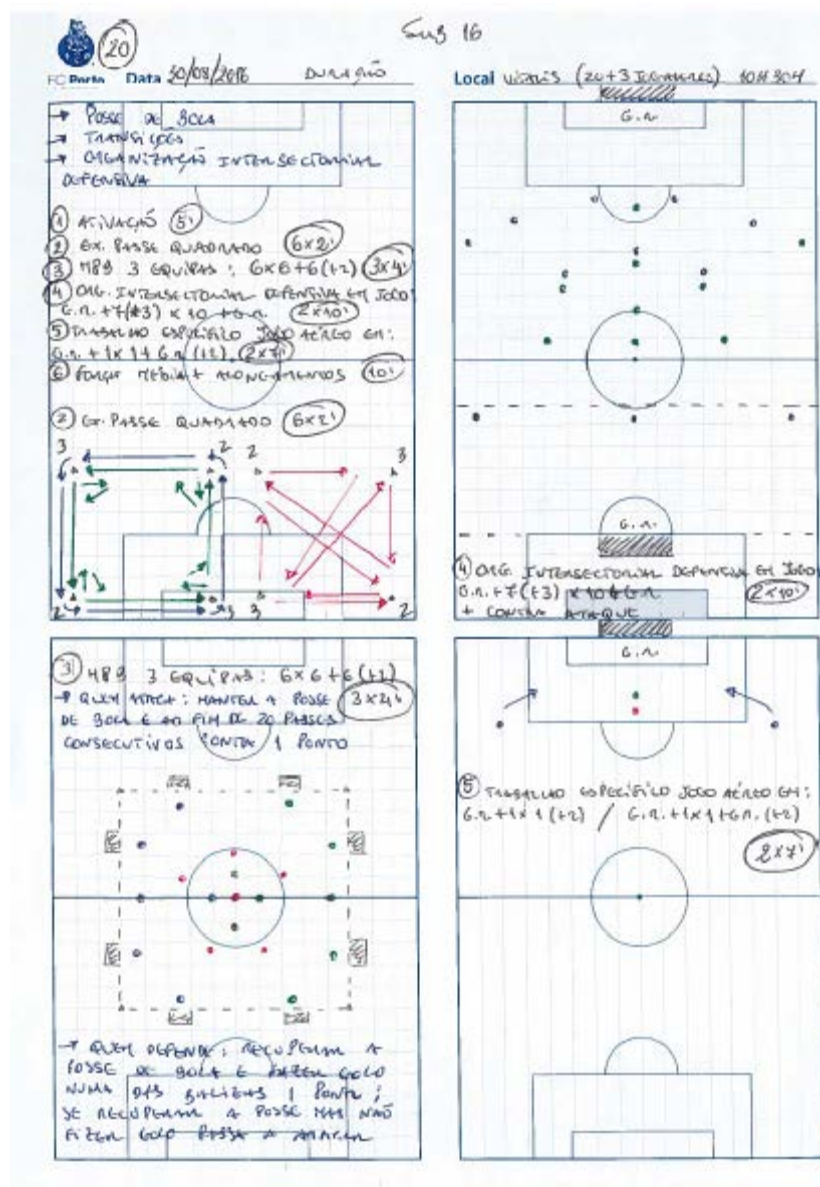 Sub 16
20
FC Porto Data 30/08/2016 DURAÇÃO
Local (20+3 JOGADORES) 10H30H
→ POSSE DE BOLA
→ TRANSIÇÕES
→ ORGANIZAÇÃO INTERSECTORIAL
DEFENSIVA
① ATIVAÇÃO 5'
② EX. PASSE QUADRADO 6x2'
③ MB9 3 EQUIPAS: 6x6+6(+2) 3x4'
④ ORG. INTERSECTORIAL DEFENSIVA EM JOGO:
G.R.+7(+3) x 10 +G.R. 2x10'
⑤ TRABALHO ESPECÍFICO JOGO AÉREO EM:
G.R.+1x1+G.R.(+2). 2x7'
⑥ FORÇA MÉDIA + ALONGAMENTOS 10'
② EX. PASSE QUADRADO 6x2'
3 2 2 3
2 3 3 2
G.R.
G.R.
④ ORG. INTERSECTORIAL DEFENSIVA EM JOGO
G.R.+7(+3) x 10+G.R. 2x10'
+ CONTRA ATAQUE
③ MB9 3 EQUIPAS: 6x6+6(+2)
→ QUEM ATACA: MANTER A POSSE 3x4'
DE BOLA E AO FIM DE 20 PASSES
CONSECUTIVOS CONTA 1 PONTO
→ QUEM DEFENDE: RECUPERAR A
POSSE DE BOLA E FAZER GOLO
NUMA DAS BALIZAS 1 PONTO;
SE RECUPERAR A POSSE MAS NÃO
FIZER GOLO PASSA A ATACAR
G.R.
⑤ TRABALHO ESPECÍFICO JOGO AÉREO EM:
G.R.+1x1(+2) / G.R.+1x1+G.R.(+2)
2x7'